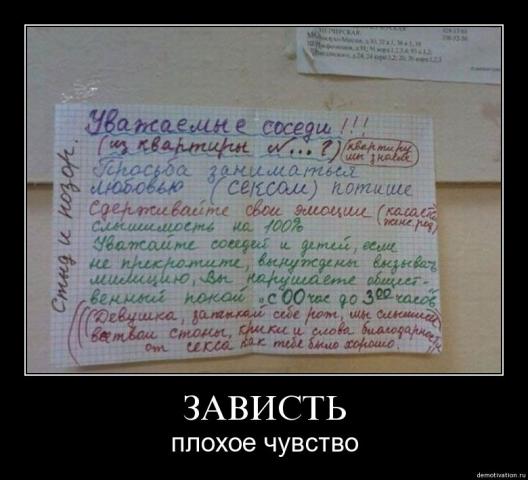 Стыд и позор.
Уважаемые соседи!!!
(из квартиры №...?) (квартиру мы знаем)
Просьба заниматься
любовью (сексом) потише
Сдерживайте свои эмоции (касается женс. род)
слышимость на 100%
Уважайте соседей и детей, если
не прекратите, вынуждены вызывать
милицию, Вы нарушаете общест-
венный покой „с 00 час до 300 часов
((Девушка, заткни себе рот, мы слышим
все твои стоны, крики и слова благодарности
от секса как тебе было хорошо.
ЗАВИСТЬ
плохое чувство
demotivation.ru